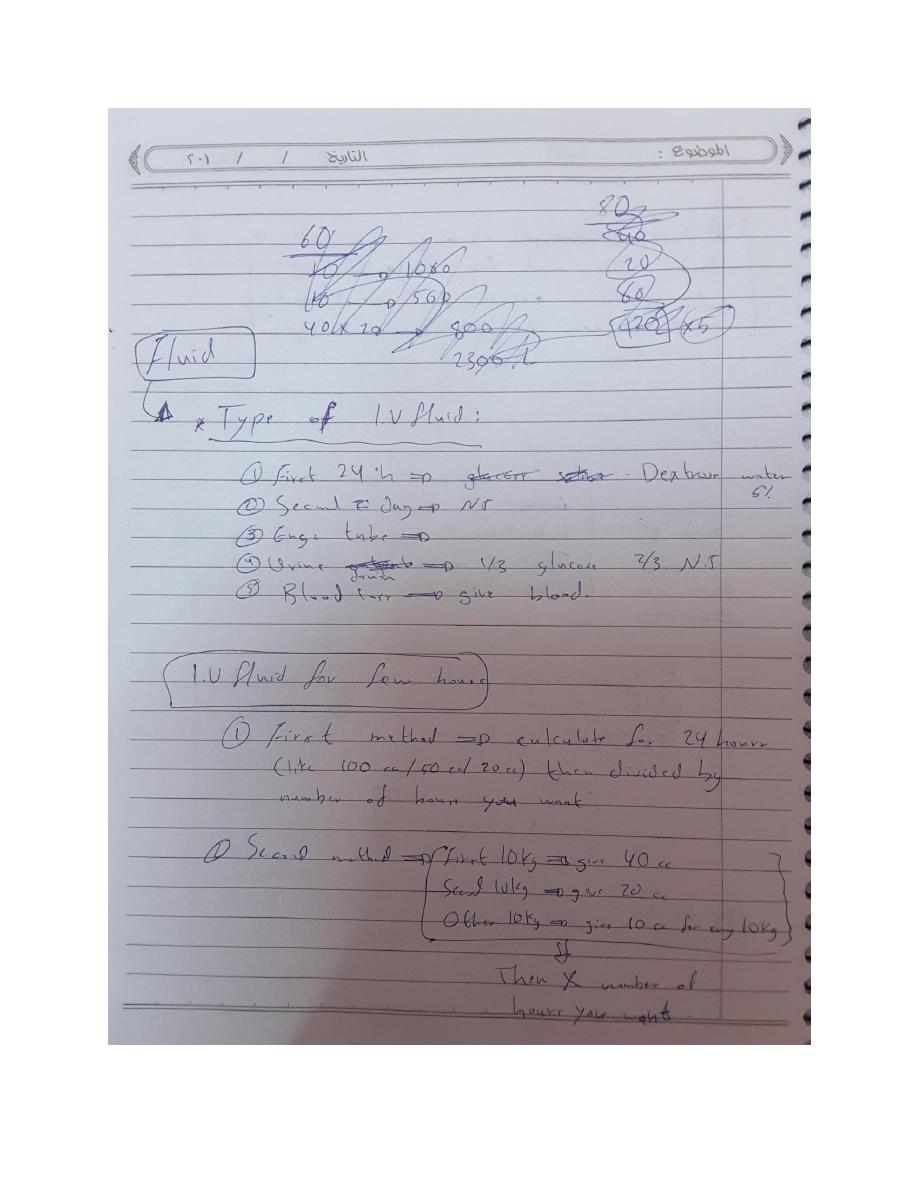 الموضوع :    التاريخ    /    /    ٢٠١
60
10 → 1000
10 → 500
40 x 20 → 800
2300
80
40
20
60
120 x 5
Fluid
* Type of I.V fluid:
① First 24 h ⇒ Dextrose water 5%
② Second day ⇒ NS
③ tube ⇒
④ Urine ⇒ 1/3 glucose 2/3 N.S
⑤ Blood loss → give blood.
I.V fluid for few hours
① First method ⇒ calculate for 24 hours
(like 100 cc/50 cc/20 cc) then divided by
number of hours you want
Second method ⇒ First 10kg ⇒ give 40 cc
Second 10kg ⇒ give 20 cc
Other 10kg ⇒ give 10 cc for every 10kg
Then X number of
hours you want